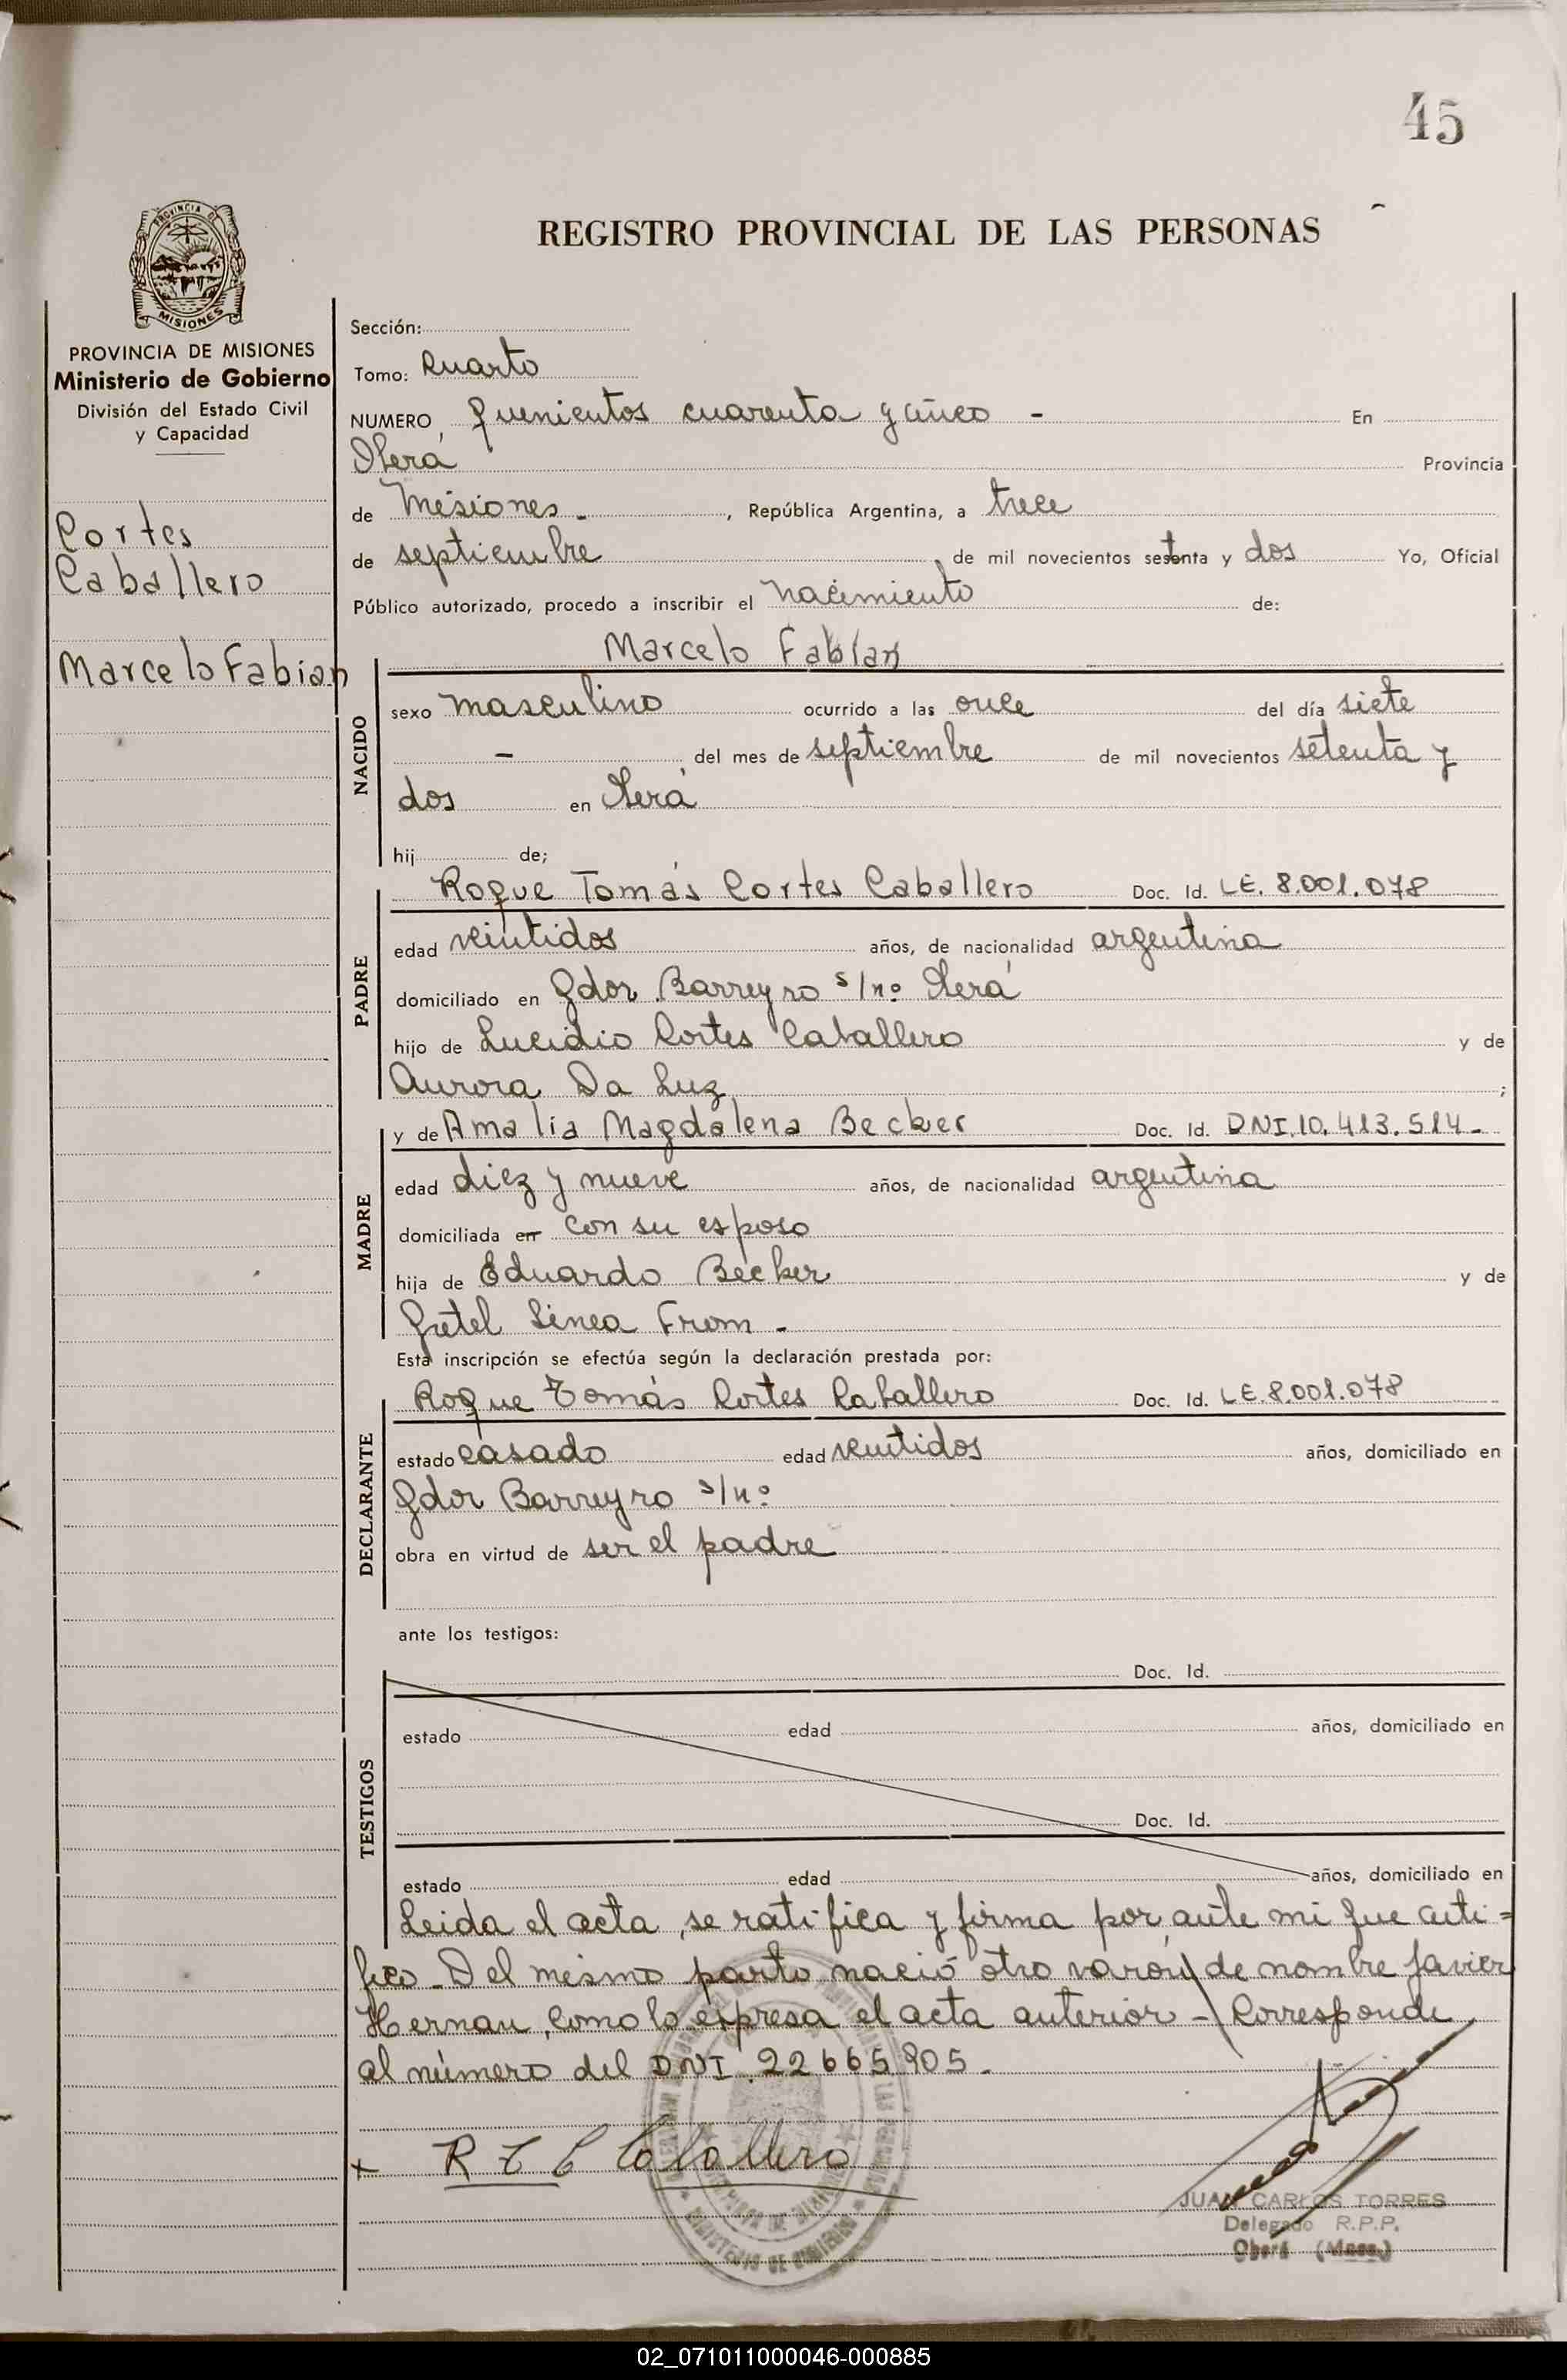 45
REGISTRO PROVINCIAL DE LAS PERSONAS
PROVINCIA DE
MISIONES
PROVINCIA DE MISIONES
Ministerio de Gobierno
División del Estado Civil
y Capacidad
Cortes
Caballero
Marcelo Fabian
Sección:
Tomo: Cuarto
NUMERO, quinientos cuarenta y cinco - En
Oberá Provincia
de Misiones - , República Argentina, a trece
de septiembre , de mil novecientos setenta y dos Yo, Oficial
Público autorizado, procedo a inscribir el nacimiento de:
Marcelo Fabián
NACIDO
sexo masculino ocurrido a las once del día siete
- del mes de septiembre de mil novecientos setenta y
dos en Oberá
hij de;
Roque Tomás Cortes Caballero Doc. Id. LE. 8.001.078
PADRE
edad veintidos años, de nacionalidad argentina
domiciliado en Gdor Barreyro s/nº Oberá
hijo de Lucidio Cortes Caballero y de
Aurora Da Luz ;
y de Amalia Magdalena Becker Doc. Id. DNI.10.413.514-
MADRE
edad diez y nueve años, de nacionalidad argentina
domiciliada en con su esposo
hija de Eduardo Becker y de
Gretel Linea From -
Esta inscripción se efectúa según la declaración prestada por:
Roque Tomás Cortes Caballero Doc. Id. LE.8.001.078
DECLARANTE
estado casado edad veintidos años, domiciliado en
Gdor Barreyro s/nº
obra en virtud de ser el padre
ante los testigos:
Doc. Id.
TESTIGOS
estado edad años, domiciliado en
Doc. Id.
estado edad años, domiciliado en
Leida el acta, se ratifica y firma por ante mi que certi=
fico - Del mismo parto nació otro varón de nombre Javier
Hernan, como lo expresa el acta anterior - Corresponde
al número del DNI. 22665905 -
x R T C Caballero
JUAN CARLOS TORRES
Delegado R.P.P.
Oberá (Mnes.)
MINISTERIO DE GOBIERNO
02_071011000046-000885